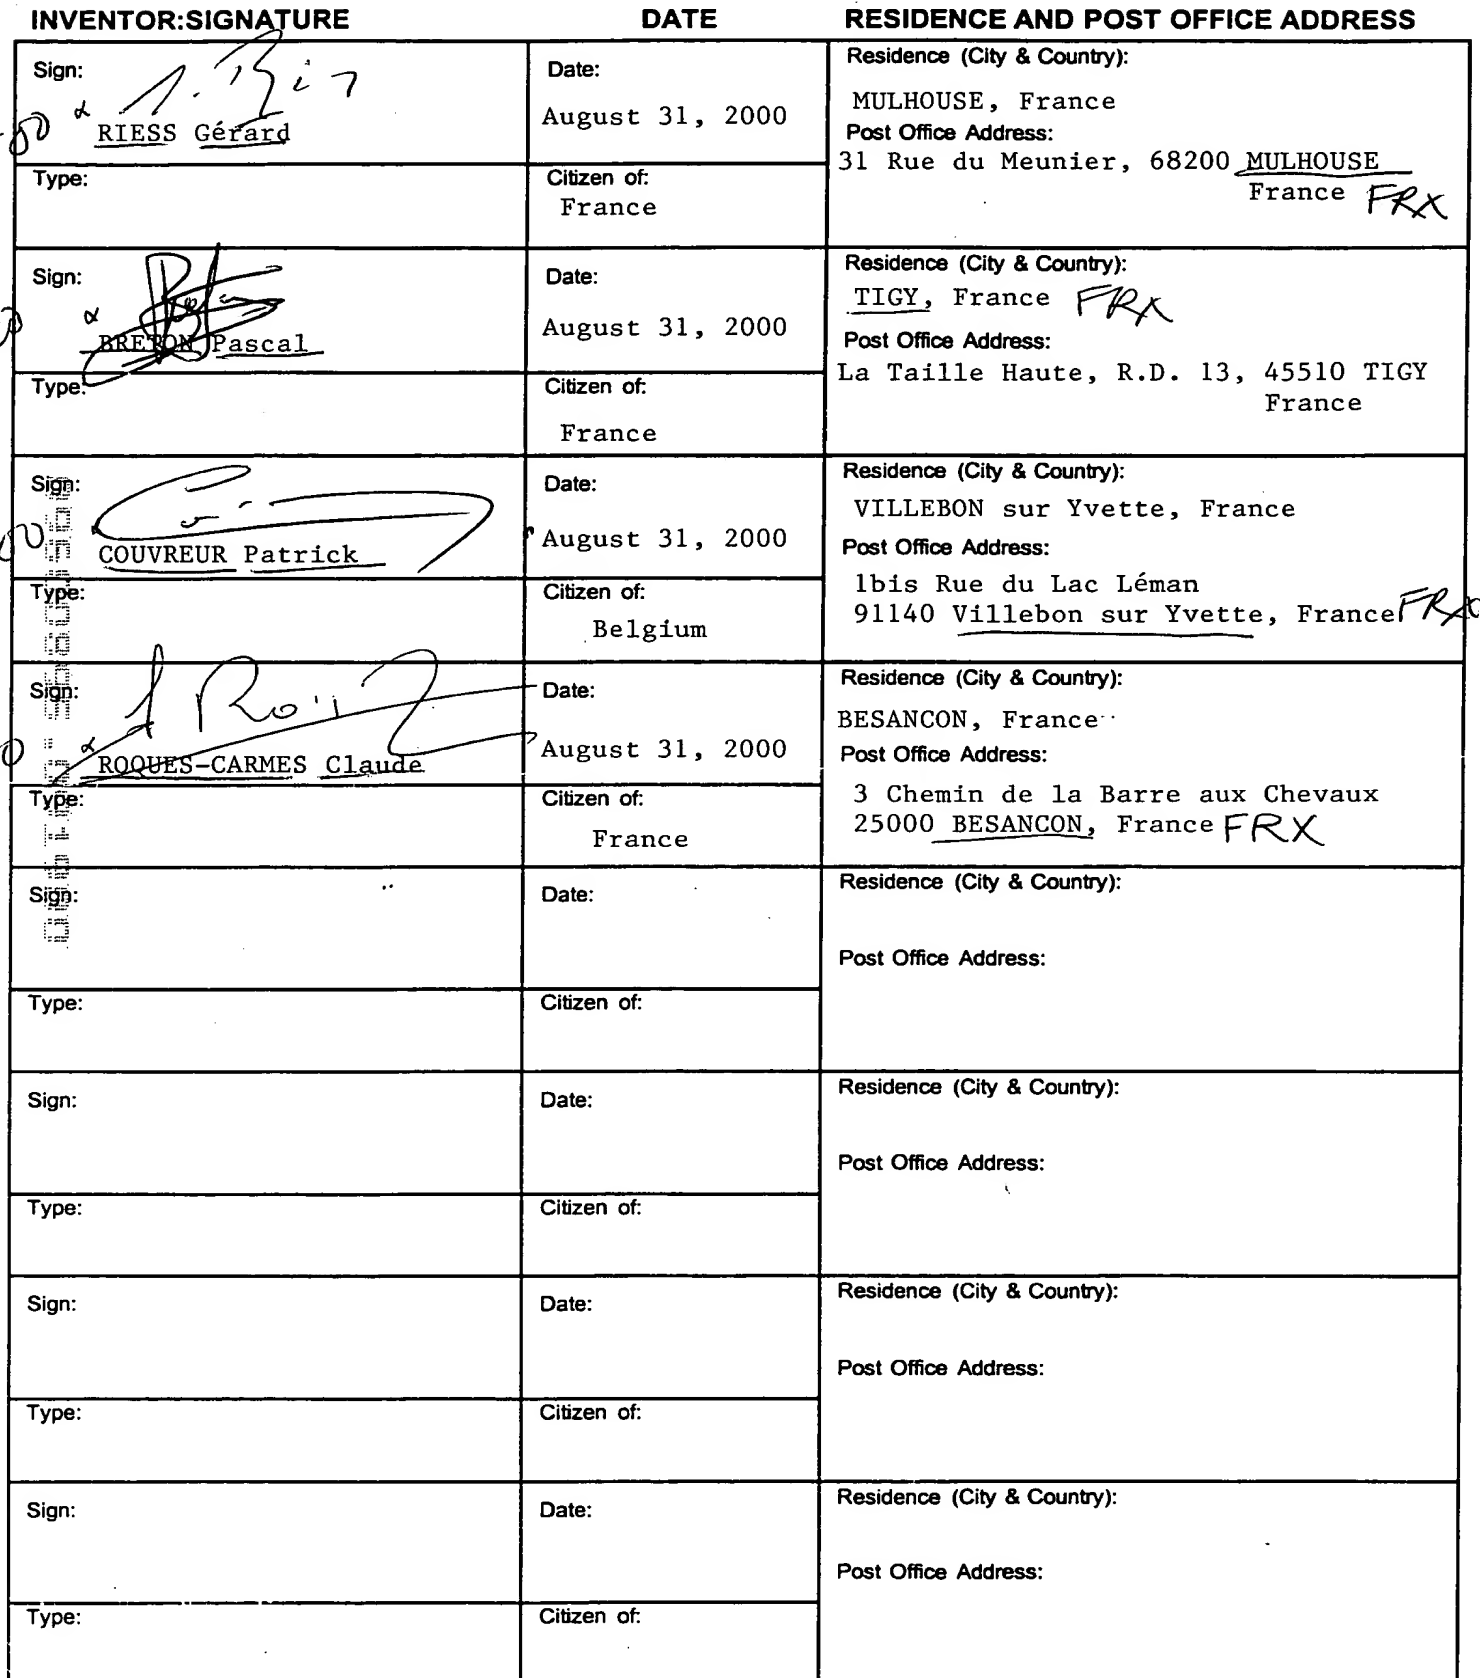 INVENTOR:SIGNATURE DATE RESIDENCE AND POST OFFICE ADDRESS
Sign:
RIESS Gérard
Date:
August 31, 2000
Residence (City & Country):
MULHOUSE, France
Post Office Address:
31 Rue du Meunier, 68200 MULHOUSE
France FRX
Type:
Citizen of:
France
Sign:
BRETON Pascal
Date:
August 31, 2000
Residence (City & Country):
TIGY, France FRX
Post Office Address:
La Taille Haute, R.D. 13, 45510 TIGY
France
Type:
Citizen of:
France
Sign:
COUVREUR Patrick
Date:
August 31, 2000
Residence (City & Country):
VILLEBON sur Yvette, France
Post Office Address:
1bis Rue du Lac Léman
91140 Villebon sur Yvette, France FRX
Type:
Citizen of:
Belgium
Sign:
ROQUES-CARMES Claude
Date:
August 31, 2000
Residence (City & Country):
BESANCON, France
Post Office Address:
3 Chemin de la Barre aux Chevaux
25000 BESANCON, France FRX
Type:
Citizen of:
France
Sign:
Date:
Residence (City & Country):
Post Office Address:
Type:
Citizen of:
Sign:
Date:
Residence (City & Country):
Post Office Address:
Type:
Citizen of:
Sign:
Date:
Residence (City & Country):
Post Office Address:
Type:
Citizen of:
Sign:
Date:
Residence (City & Country):
Post Office Address:
Type:
Citizen of: